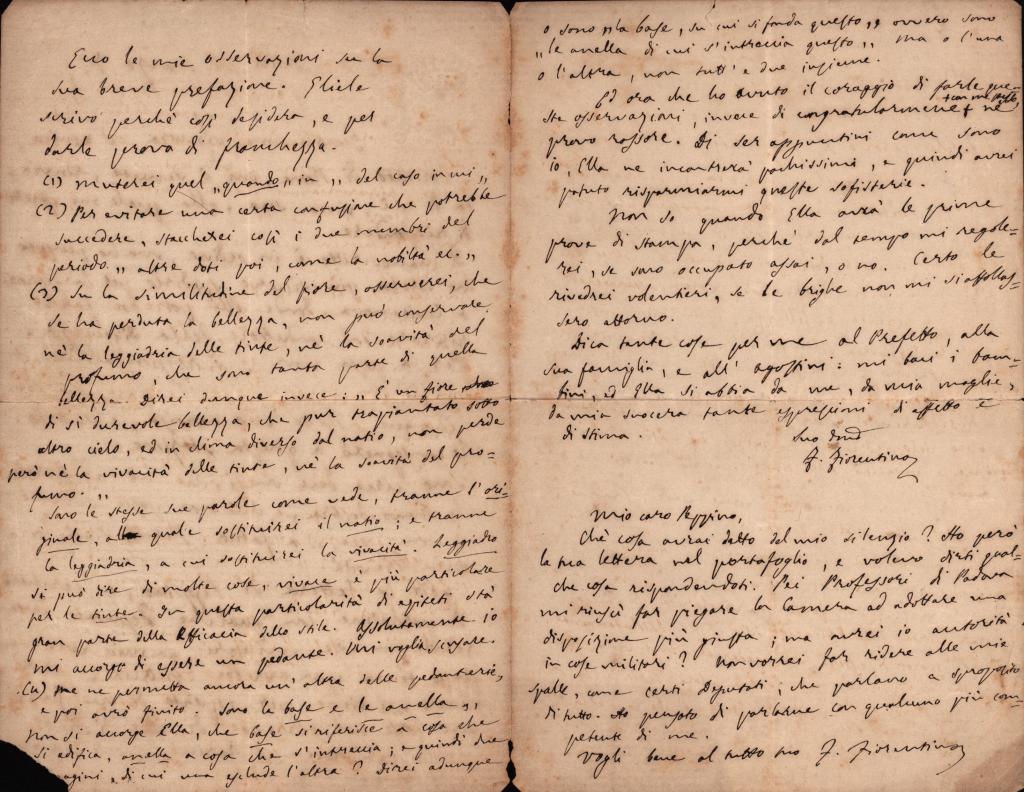 Ecco le mie osservazioni su la
sua breve prefazione. Gliele
scrivo perchè così desidera, e per
darle prova di franchezza.
(1) muterei quel „quando„ in „ del caso in cui „
(2) Per evitare una certa confusione che potrebbe
succedere, staccherei così i due membri del
periodo „ altre doti poi, come la nobiltà ec. „
(3) Su la similitudine del fiore, osserverei, che
se ha perduta la bellezza, non può conservare
nè la leggiadria delle tinte, nè la soavità del
profumo, che sono tanta parte di quella
bellezza. Direi dunque invece: „ È un fiore
di sì durevole bellezza, che pur trapiantato sotto
altro cielo, ed in clima diverso dal natio, non perde
però nè la vivacità delle tinte, nè la soavità del pro-
fumo. „
Sono le stesse sue parole come vede, tranne l'ori-
ginale, al quale sostituirei il natio; e tranne
la leggiadria, a cui sostituirei la vivacità. Leggiadro
si può dire di molte cose, vivace è più particolare
per le tinte. In questa particolarità di epiteti stà
gran parte della efficacia dello stile. Assolutamente io
mi accorgo di essere un pedante. Mi voglia scusare.
(4) me ne permetta ancora un'altra delle pedanterie,
e poi avrò finito. Sono la base e le anella „
Non si accorge Ella, che base si riferisce a cosa che
si edifica, anella a cosa che s'intreccia; e quindi due
immagini, di cui una esclude l'altra? Direi adunque
o sono „ la base, su cui si fonda questo „ ovvero sono
„ le anella di cui s'intreccia questo „ ma o l'una
o l'altra, non tutt'e due insieme.
Ed ora che ho avuto il coraggio di farle que-
ste osservazioni, invece di congratularmene + con me stesso, nè
provo rossore. Di ser appuntini come sono
io, Ella ne incontrerà pochissimi, e quindi avrei
potuto risparmiarmi queste sofisterie.
Non so quando Ella avrà le prime
prove di stampa, perchè dal tempo mi regole-
rei, se sono occupato assai, o no. Certo le
rivedrei volentieri, se le brighe non mi si affollas-
sero attorno.
Dica tante cose per me al Prefetto, alla
sua famiglia, e all' Agostini: mi baci i bam-
bini, ed Ella si abbia da me, da mia moglie,
da mia suocera tante espressioni di affetto e
di stima.
Suo
F. Fiorentino
Mio caro Peppino,
Che cosa avrai detto del mio silenzio? Ho però
la tua lettera nel portafoglio, e volevo dirti qual-
che cosa rispondendoti. Pei Professori di Padova
mi riuscì far piegare la Camera ad adottare una
disposizione più giusta; ma avrei io autorità
in cose militari? Non vorrei far ridere alle mie
spalle, come certi Deputati, che parlano a sproposito
di tutto. Ho pensato di parlarne con qualcuno più com-
petente di me.
Vogli bene al tutto tuo F. Fiorentino